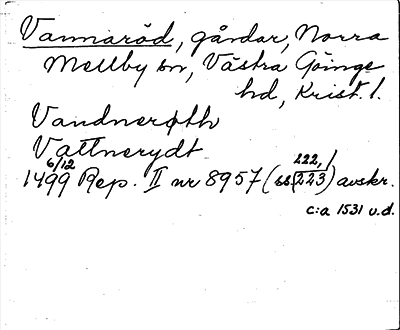 Vannaröd, gårdar, Norra
Mellby sn, Västra Göinge
hd, Krist. l.
Vandnerøth
Vattnerydt
6/12
222,
1499 Rep. II nr 8957 (ss 223) avskr.
c:a 1531 u.d.